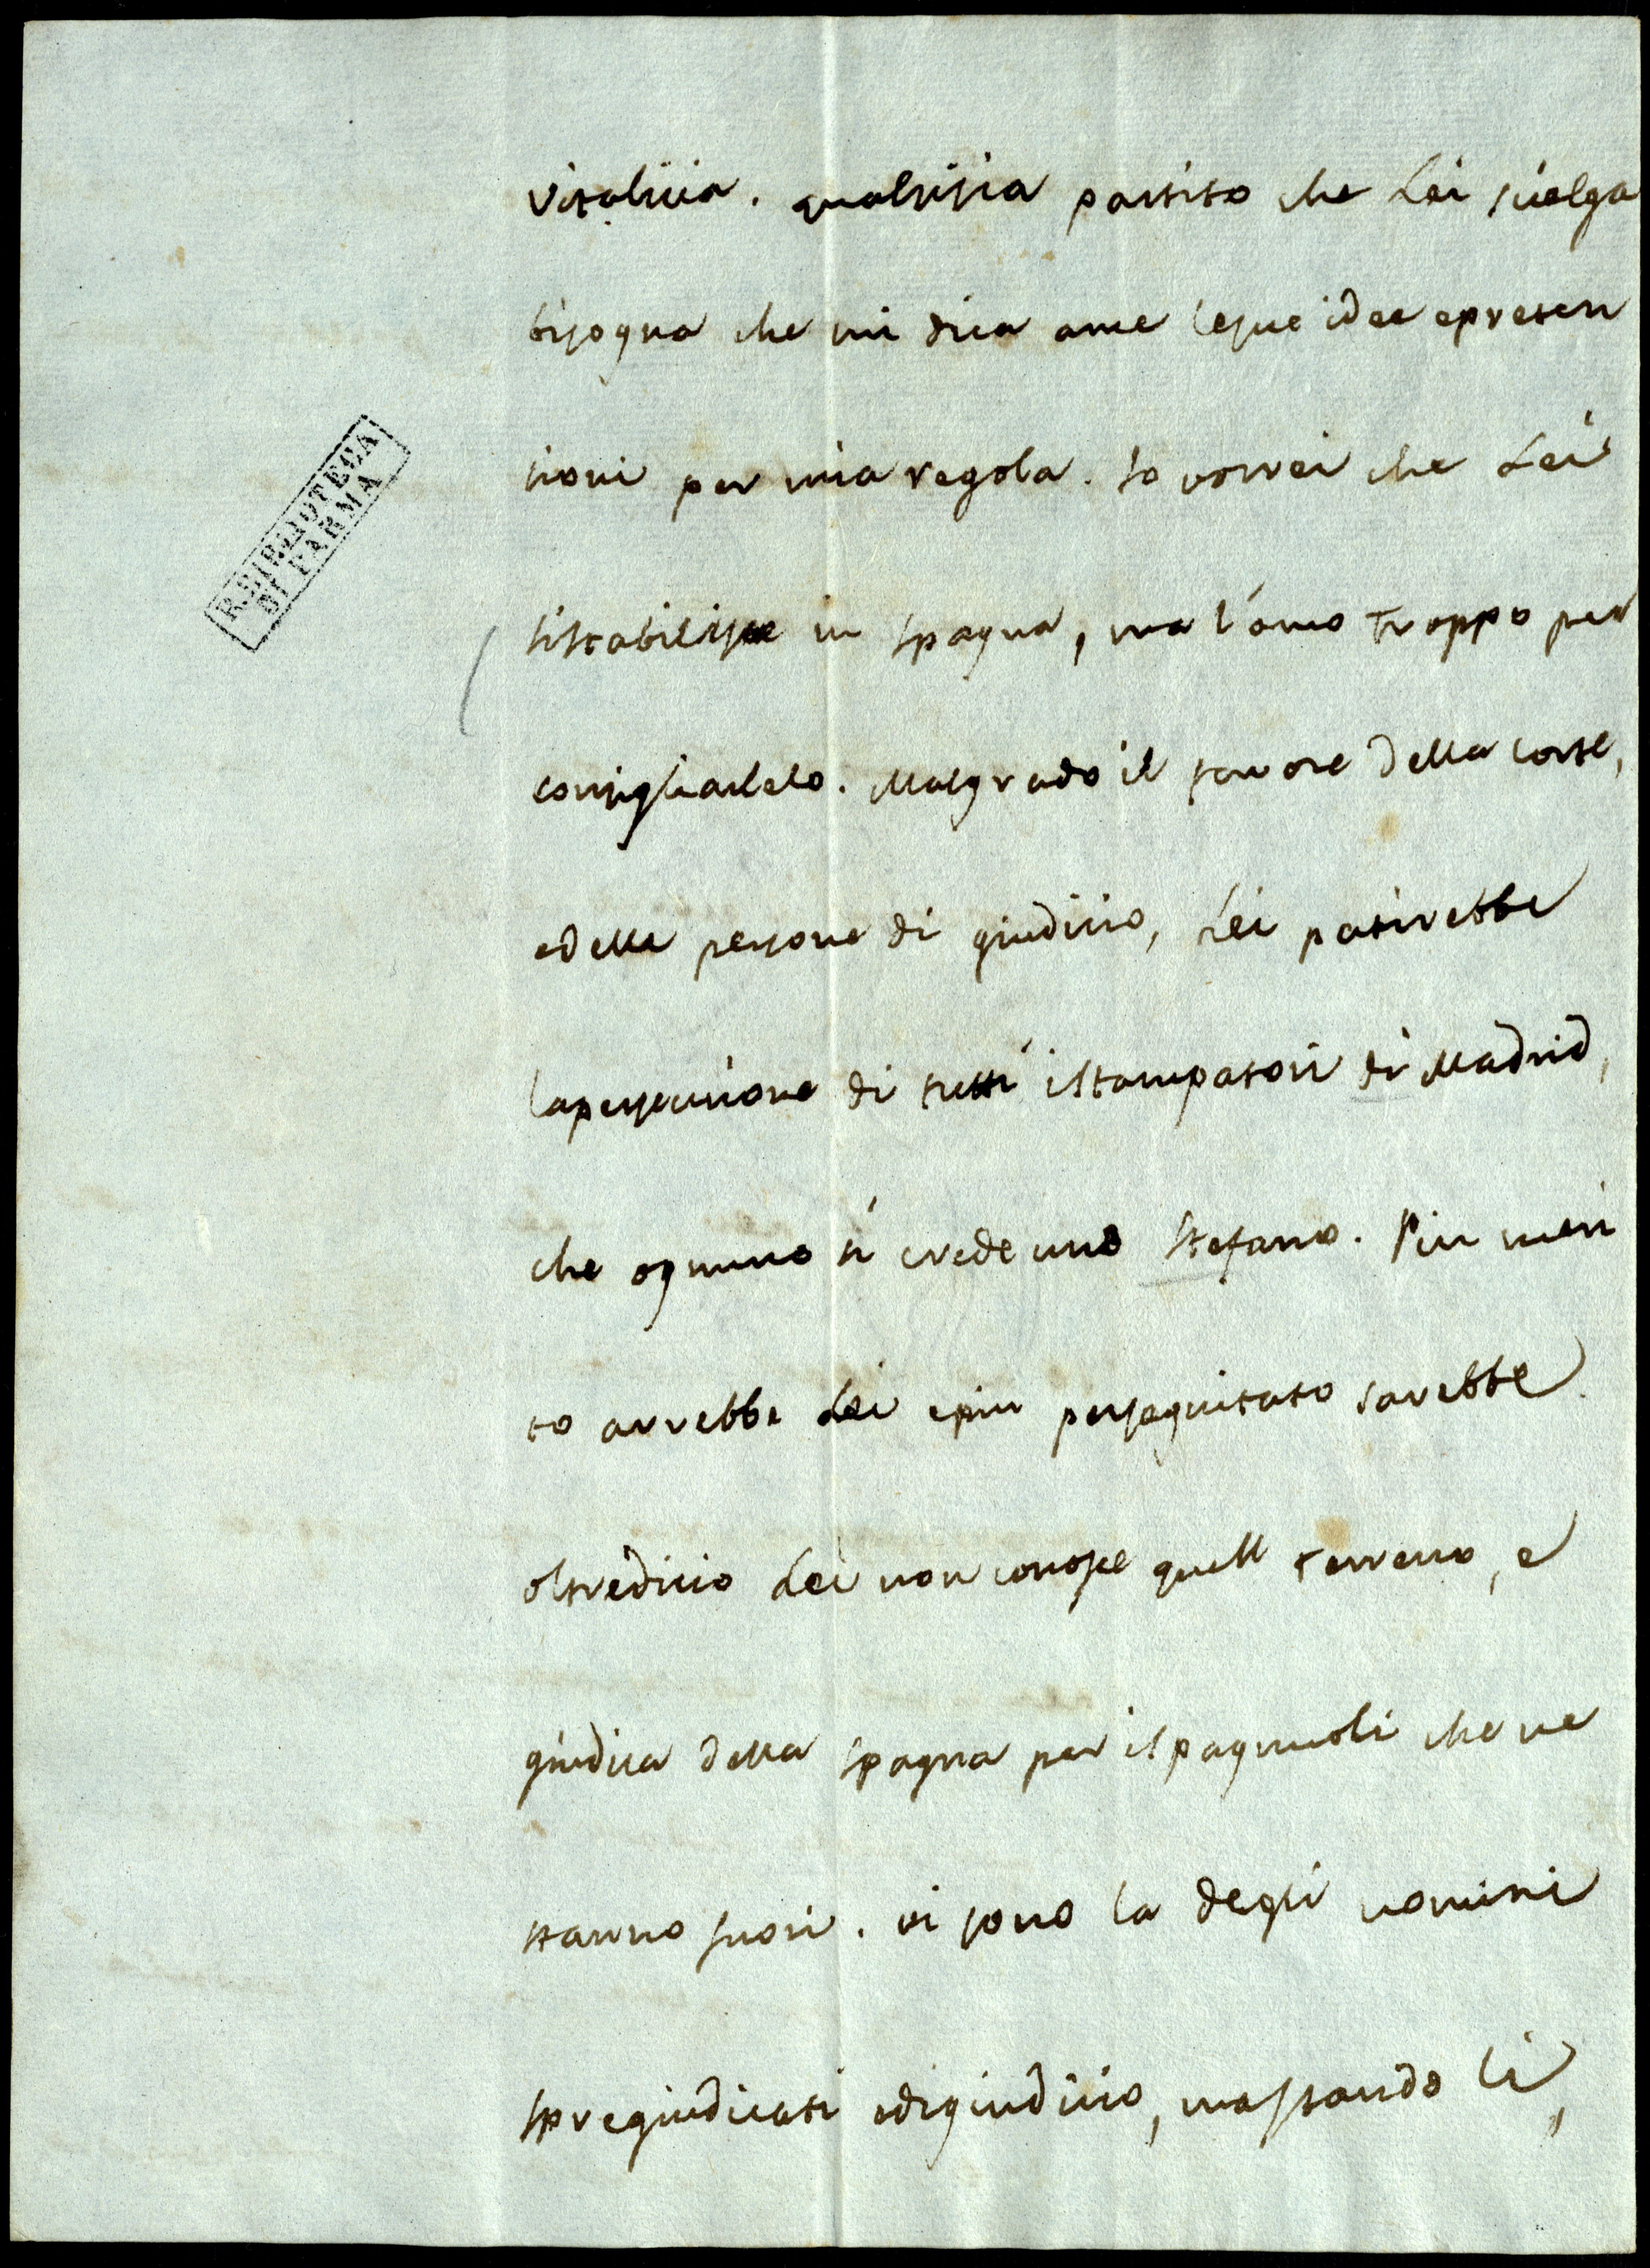 vitalicia. qualsisia partito che Lei scielga
bisogna che mi dica ame lesue idee epreten
sioni per mia regola. Io vorrei che Lei
sistabilisse in Spagna, ma l'amo troppo per
consigliarlelo. Malgrado il favore della corte,
edelle persone di giudicio, Lei patirebbe
lapersecuzione di tutti istampatori di Madrid,
che ognuno si crede uno Stefano. Piu meri
to avrebbe Lei epiu perseguitato sarebbe
oltredicio Lei non conosce quell terreno, e
giudica della Spagna per ispagnuoli che ne
stanno fuori. vi sono la degli uomini
spregiudicati edigiudicio, mastando li,
R. BIBLIOTECA
DI PARMA